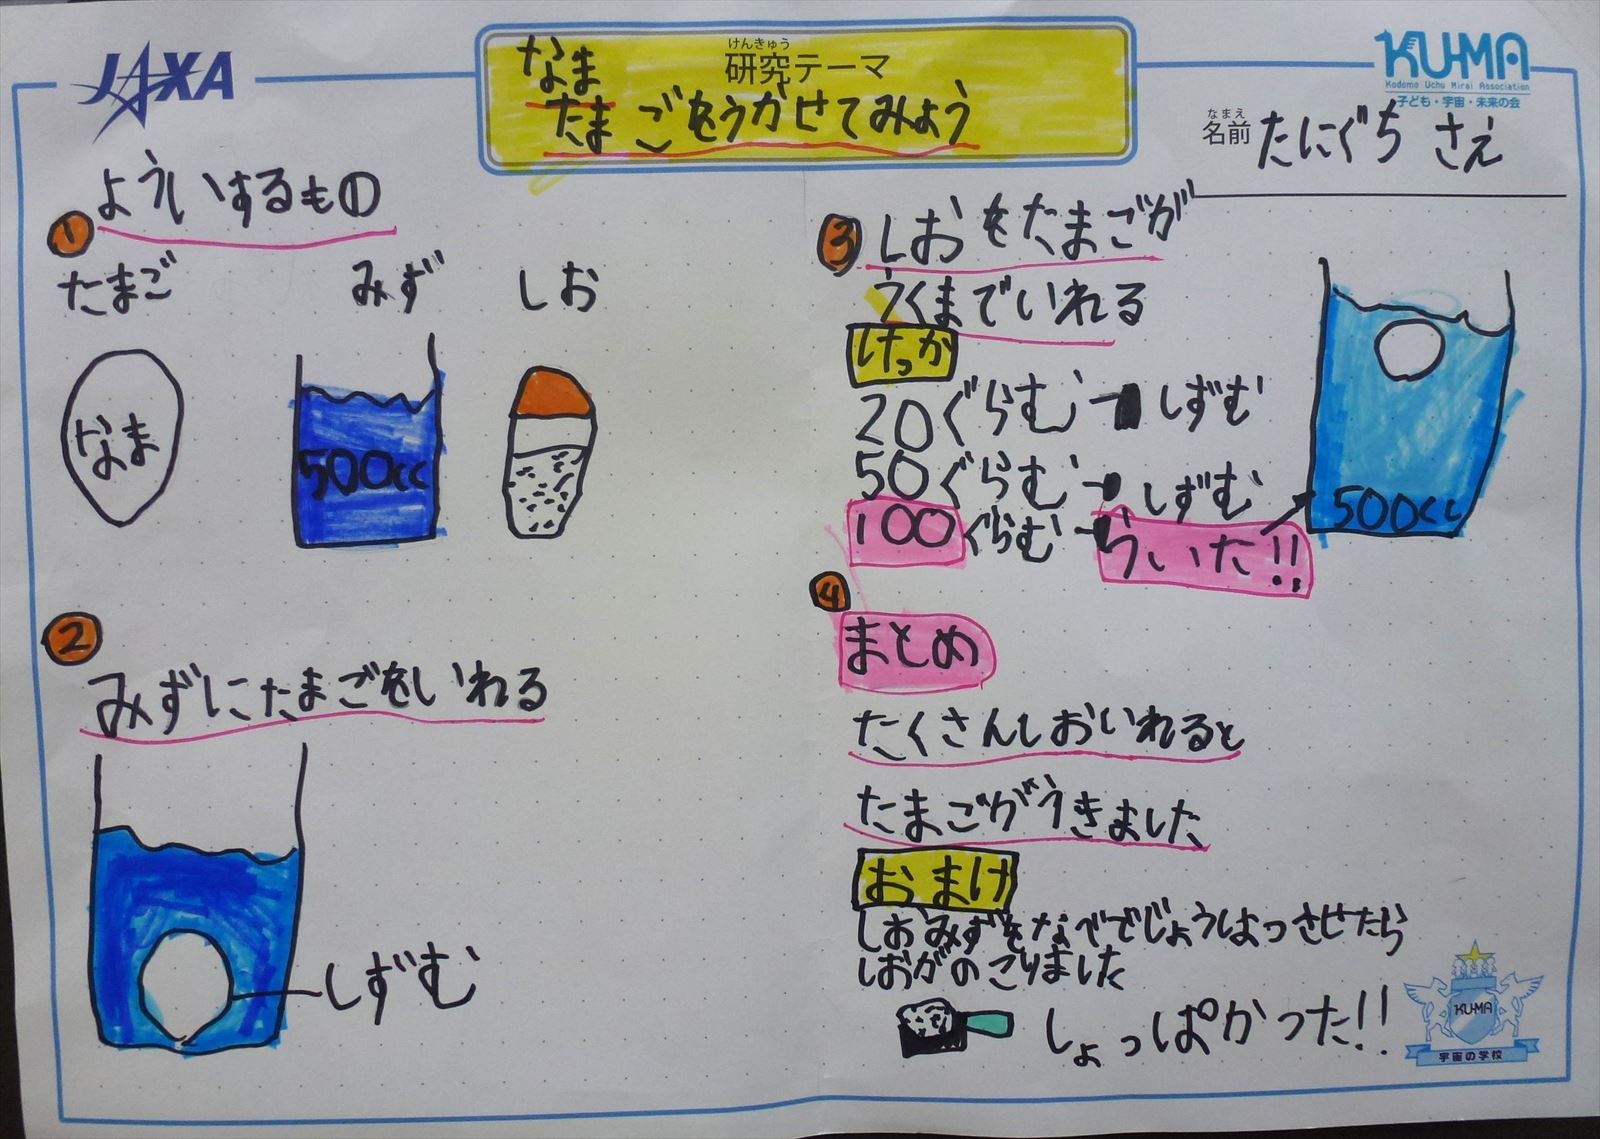 JAXA
けんきゅう
研究テーマ
なま
たまごをうかせてみよう
KU-MA
Kodomo Uchu Mirai Association
子ども・宇宙・未来の会
なまえ
名前 たにぐち さえ
① よういするもの
たまご みず しお
なま
500cc
② みずにたまごをいれる
しずむ
③ しおをたまごが
うくまでいれる
けっか
20ぐらむ→しずむ
50ぐらむ→しずむ
100ぐらむ→ういた!!
500cc
④
まとめ
たくさんしおいれると
たまごがうきました
おまけ
しおみずをなべでじょうはっさせたら
しおがのこりました
しょっぱかった!!
KU-MA
宇宙の学校